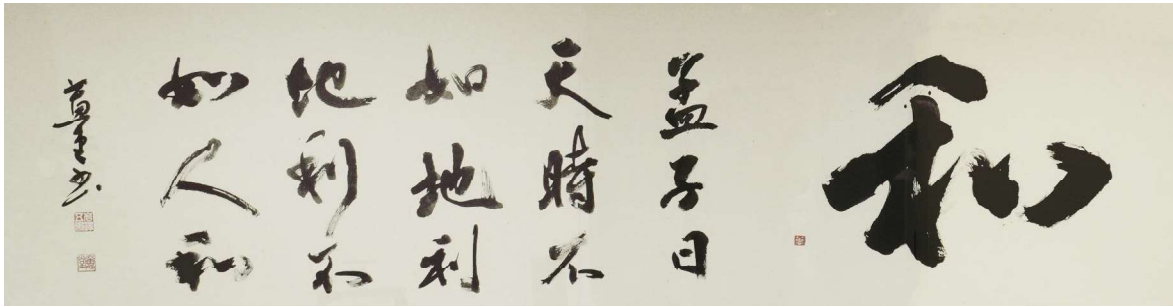 和
孟子曰
天時不
如地利
地利不
如人和